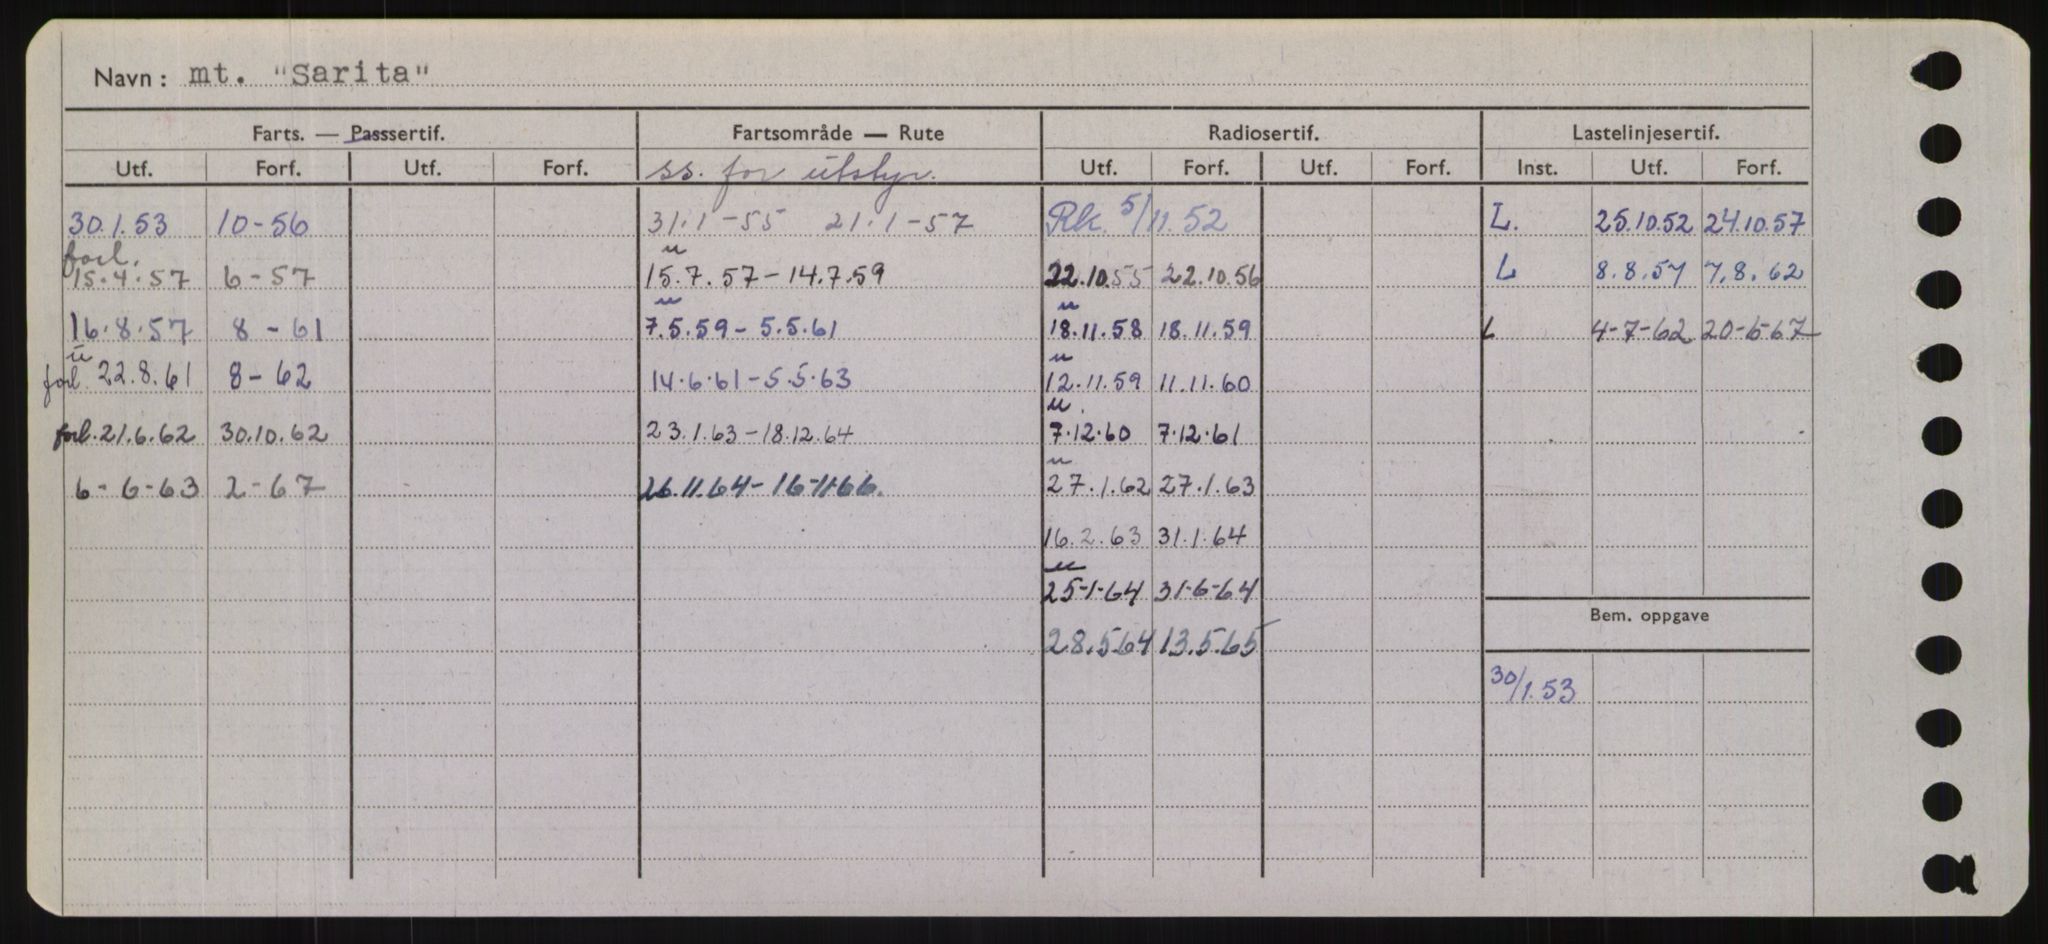 Navn: mt. "Sarita"
Farts. — Passsertif. Fartsområde — Rute Radiosertif. Lastelinjesertif.
Utf. Forf. Utf. Forf. ss. for utstyr. Utf. Forf. Utf. Forf. Inst. Utf. Forf.
30.1.53 10-56 31.1-55 21.1-57 Rk. 5/11.52 L. 25.10.52 24.10.57
forl. u
15.4.57 6-57 15.7.57-14.7.59 22.10.55 22.10.56 L 8.8.57 7.8.62
u u
16.8.57 8-61 7.5.59-5.5.61 18.11.58 18.11.59 L 4-7-62 20-6-67
u u
forl 22.8.61 8-62 14.6.61-5.5.63 12.11.59 11.11.60
u.
forl. 21.6.62 30.10.62 23.1.63-18.12.64 7.12.60 7.12.61
u
6-6-63 2-67 26.11.64-16-11-66. 27.1.62 27.1.63
16.2.63 31.1.64
u
25-1-64 31-6-64
Bem. oppgave
28.5.64 13.5.65
30/1.53